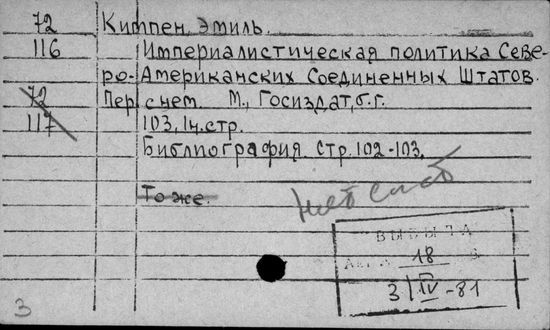 72 Киппен, Эмиль.
116 Империалистическая политика Севе-
ро-Американских Соединенных Штатов.
72 Пер. с нем. М., Госиздат, б.г.
117 103, 1ч. стр.
Библиография. Стр. 102-103.
То же.
ВЫБЫЛА
Акт № 18
3/IV-81
3